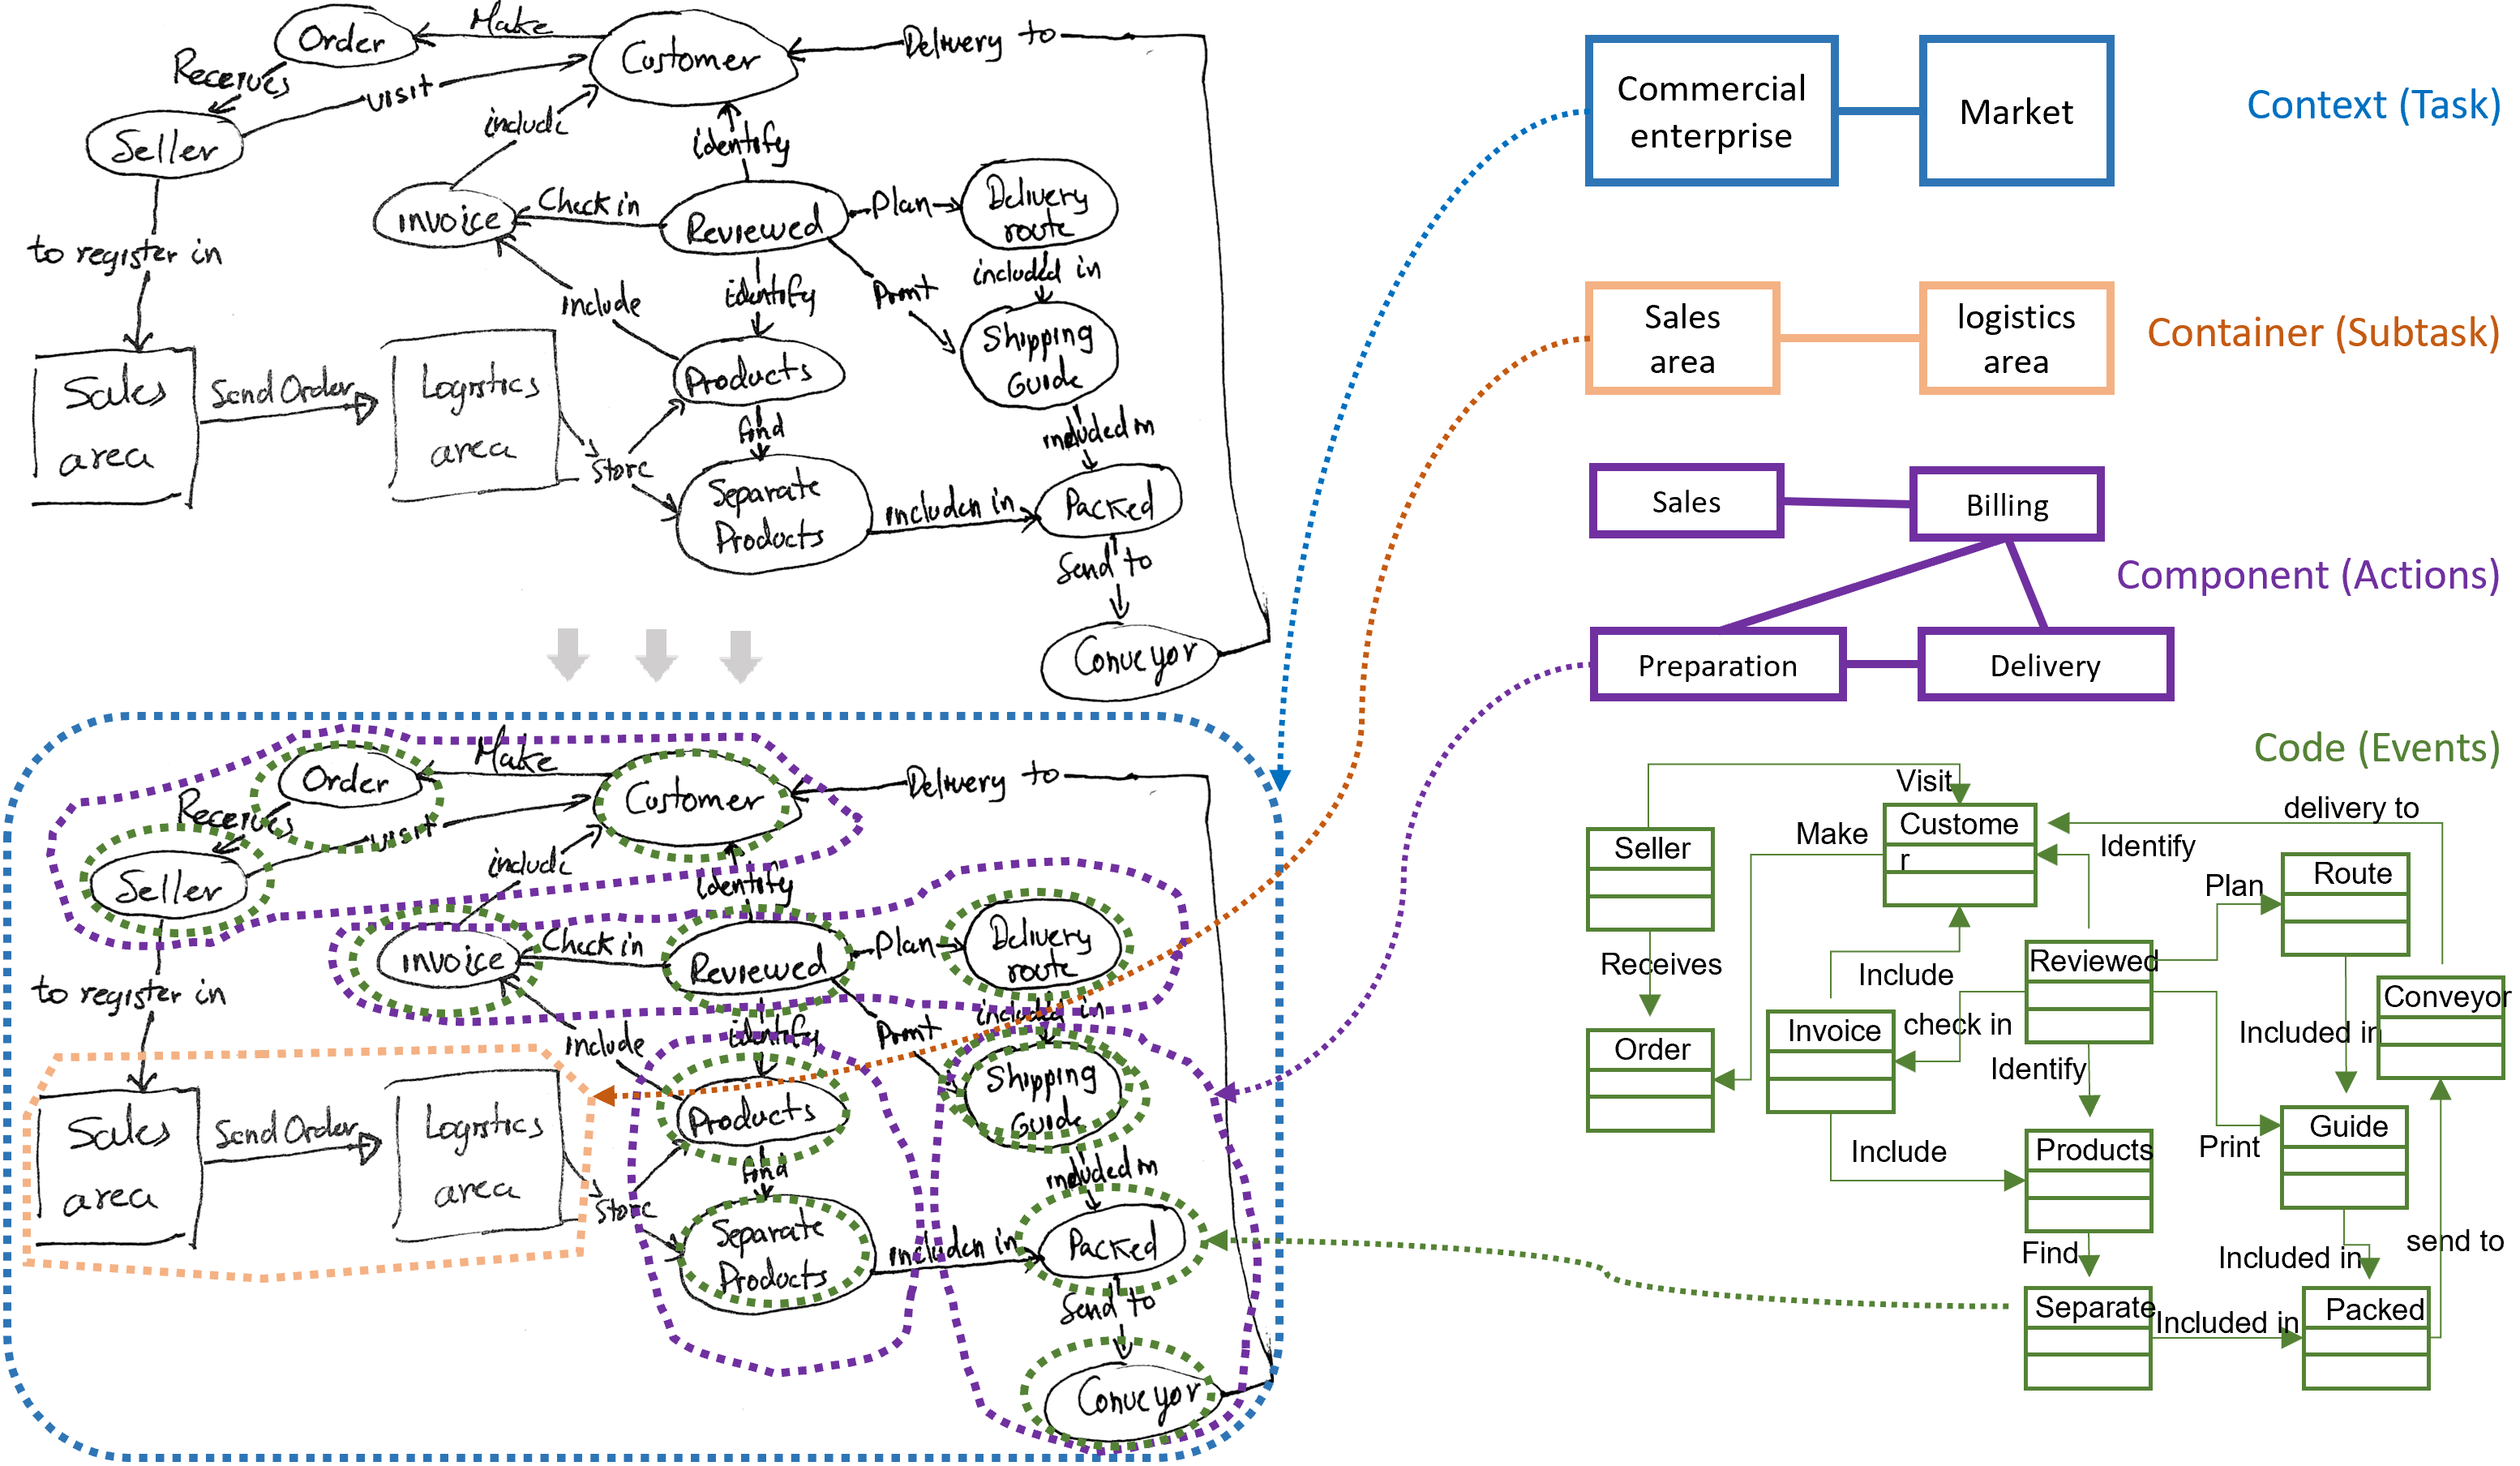 Order
Make
Customer
Delivery to
Receives
visit
Seller
include
identify
to register in
invoice
Check in
Reviewed
Plan
Delivery
route
included in
include
identify
Print
Shipping
Guide
Sales
area
Send Order
Logistics
area
Store
Products
find
Separate
Products
included in
included in
Packed
Send to
Conveyor
Order
Make
Customer
Delivery to
Receives
visit
Seller
include
identify
to register in
invoice
Check in
Reviewed
Plan
Delivery
route
included in
include
identify
Print
Shipping
Guide
Sales
area
Send Order
Logistics
area
Store
Products
find
Separate
Products
included in
included in
Packed
Send to
Conveyor
Commercial
enterprise
Market
Context (Task)
Sales
area
logistics
area
Container (Subtask)
Sales
Billing
Component (Actions)
Preparation
Delivery
Code (Events)
Visit
delivery to
Custome
r
Make
Seller
Identify
Route
Plan
Receives
Include
Reviewed
Conveyor
Invoice
check in
Included in
Order
Identify
Guide
Include
Products
Print
Find
Included in
send to
Separate
Included in
Packed